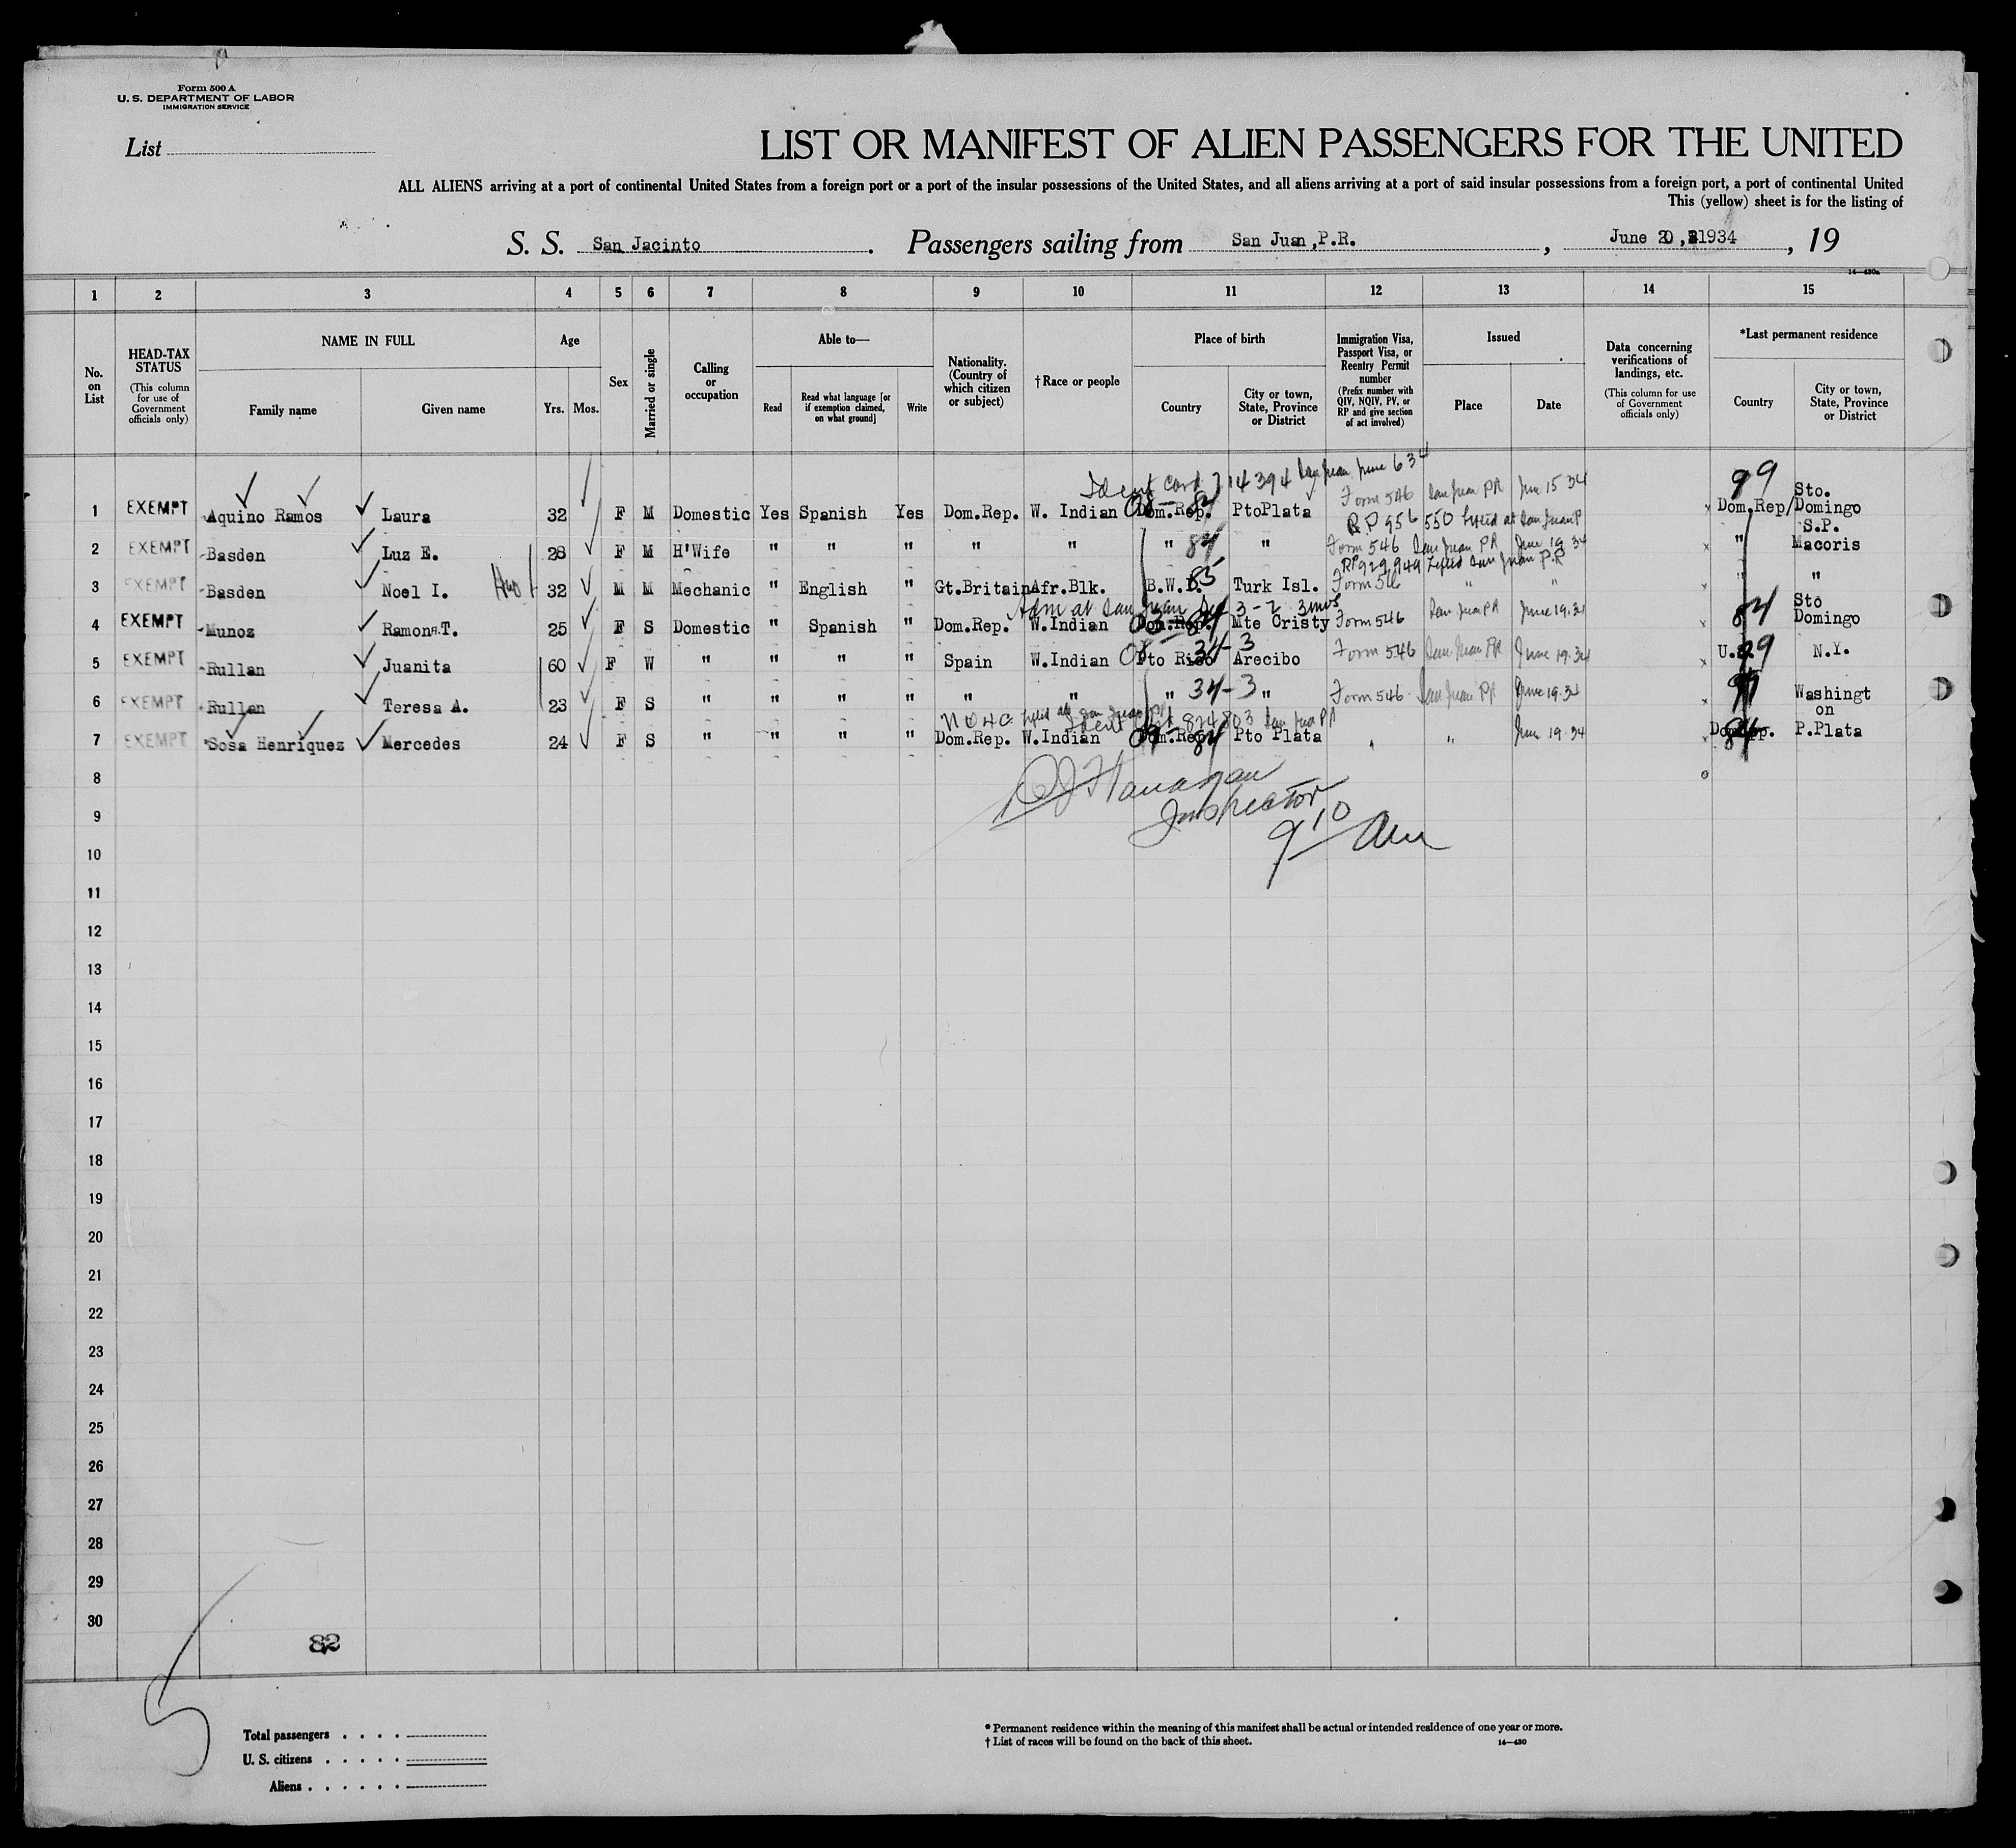 Form 500 A
U. S. DEPARTMENT OF LABOR
IMMIGRATION SERVICE
List
LIST OR MANIFEST OF ALIEN PASSENGERS FOR THE UNITED
ALL ALIENS arriving at a port of continental United States from a foreign port or a port of the insular possessions of the United States, and all aliens arriving at a port of said insular possessions from a foreign port, a port of continental United
This (yellow) sheet is for the listing of
S. S. San Jacinto . Passengers sailing from San Juan, P.R. , June 20, 1934 , 19
14—430a
1 2 3 4 5 6 7 8 9 10 11 12 13 14 15
No. on List
HEAD-TAX STATUS
(This column for use of Government officials only)
NAME IN FULL
Family name Given name
Age
Yrs. Mos.
Sex
Married or single
Calling or occupation
Able to—
Read
Read what language [or if exemption claimed, on what ground]
Write
Nationality. (Country of which citizen or subject)
† Race or people
Place of birth
Country
City or town, State, Province or District
Immigration Visa, Passport Visa, or Reentry Permit number
(Prefix number with QIV, NQIV, PV, or RP and give section of act involved)
Issued
Place Date
Data concerning verifications of landings, etc.
(This column for use of Government officials only)
*Last permanent residence
Country
City or town, State, Province or District
Ident Card 714394 San Juan June 6 34
1 EXEMPT Aquino Ramos Laura 32 F M Domestic Yes Spanish Yes Dom.Rep. W. Indian Dom.Rep. PtoPlata Form 546 San Juan PR June 15 34 99 Dom.Rep/ Sto. Domingo
RP 956 550 lifted at San Juan P
2 EXEMPT Basden Luz E. 28 F M H'Wife " " " " " " 84 " Form 546 San Juan PR June 19 34 " S.P. Macoris
RP 929,949 Lifted San Juan P.R
3 EXEMPT Basden Noel I. 32 M M Mechanic " English " Gt.Britain Afr.Blk. B.W.I. 85 Turk Isl. Form 546 " " " "
Adm at San Juan 3-2 3mos
4 EXEMPT Munoz Ramona T. 25 F S Domestic " Spanish " Dom.Rep. W.Indian Dom.Rep. 84 Mte Cristy Form 546 San Juan PR June 19.34 84 Sto Domingo
5 EXEMPT Rullan Juanita 60 F W " " " " Spain W.Indian Pto Rico 34-3 Arecibo Form 546 San Juan PR June 19.34 U.S. 99 N.Y.
6 EXEMPT Rullan Teresa A. 23 F S " " " " " " " 34-3 " Form 546 San Juan PR June 19.34 99 Washingt on
Ident Card 824803 San Juan PR
7 EXEMPT Sosa Henriquez Mercedes 24 F S " " " " Dom.Rep. W.Indian Dom.Rep. 84 Pto Plata " June 19.34 84 P.Plata
8
Flanagan
Inspector
9
9 10 Am
10
11
12
13
14
15
16
17
18
19
20
21
22
23
24
25
26
27
28
29
30
82
Total passengers
U. S. citizens
Aliens
* Permanent residence within the meaning of this manifest shall be actual or intended residence of one year or more.
† List of races will be found on the back of this sheet.
14—430